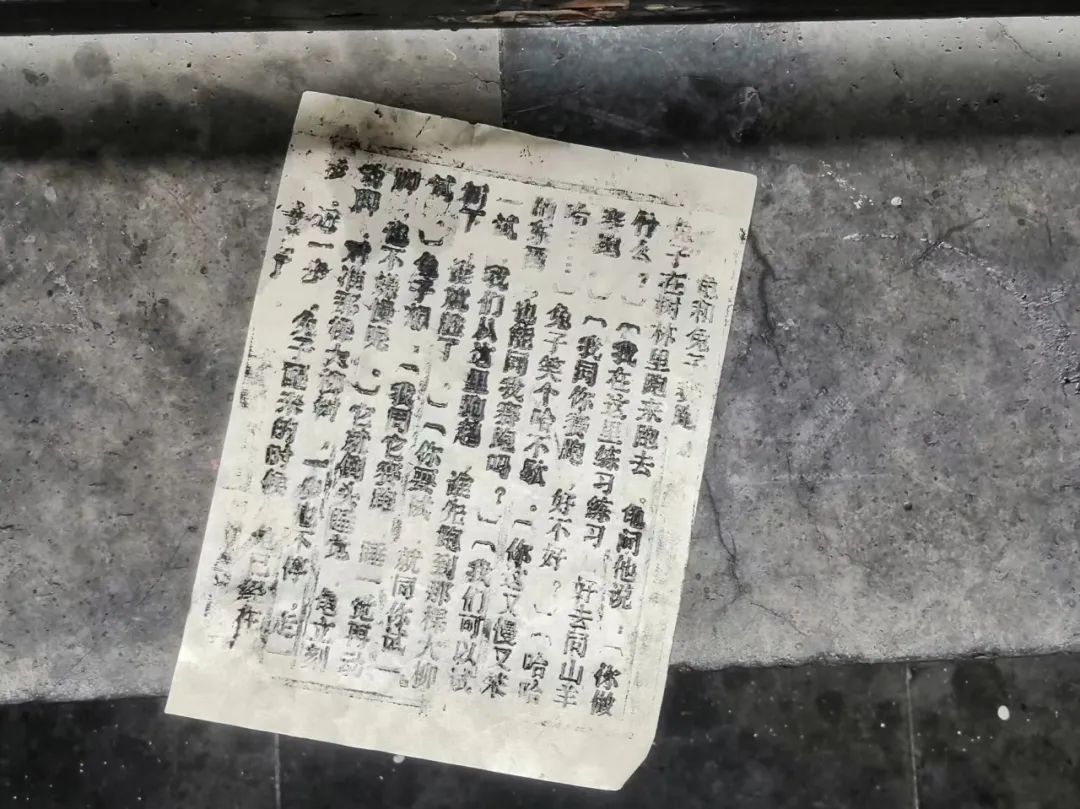 龟和兔子赛跑
兔子在树林里跑来跑去 龟问他说：「你做
什么？」「我在这里练习练习 好去同山羊
赛跑 」「我同你赛跑 好不好？」「哈哈
哈……」兔子笑个哈不歇.「你这又慢又笨
的东西 也能同我赛跑吗？」「我们可以试
一试 我们从这里跑起 谁先跑到那棵大柳
树下 谁就胜了 」「你要试 就同你试一
试 」兔子想.「我同它赛跑 睡一觉再动
脚 也不嫌慢呢 」它就倒头睡 龟立刻
动脚 对准那棵大柳树 一步也不停 走
步 近一步 兔子醒来的时候 已经在